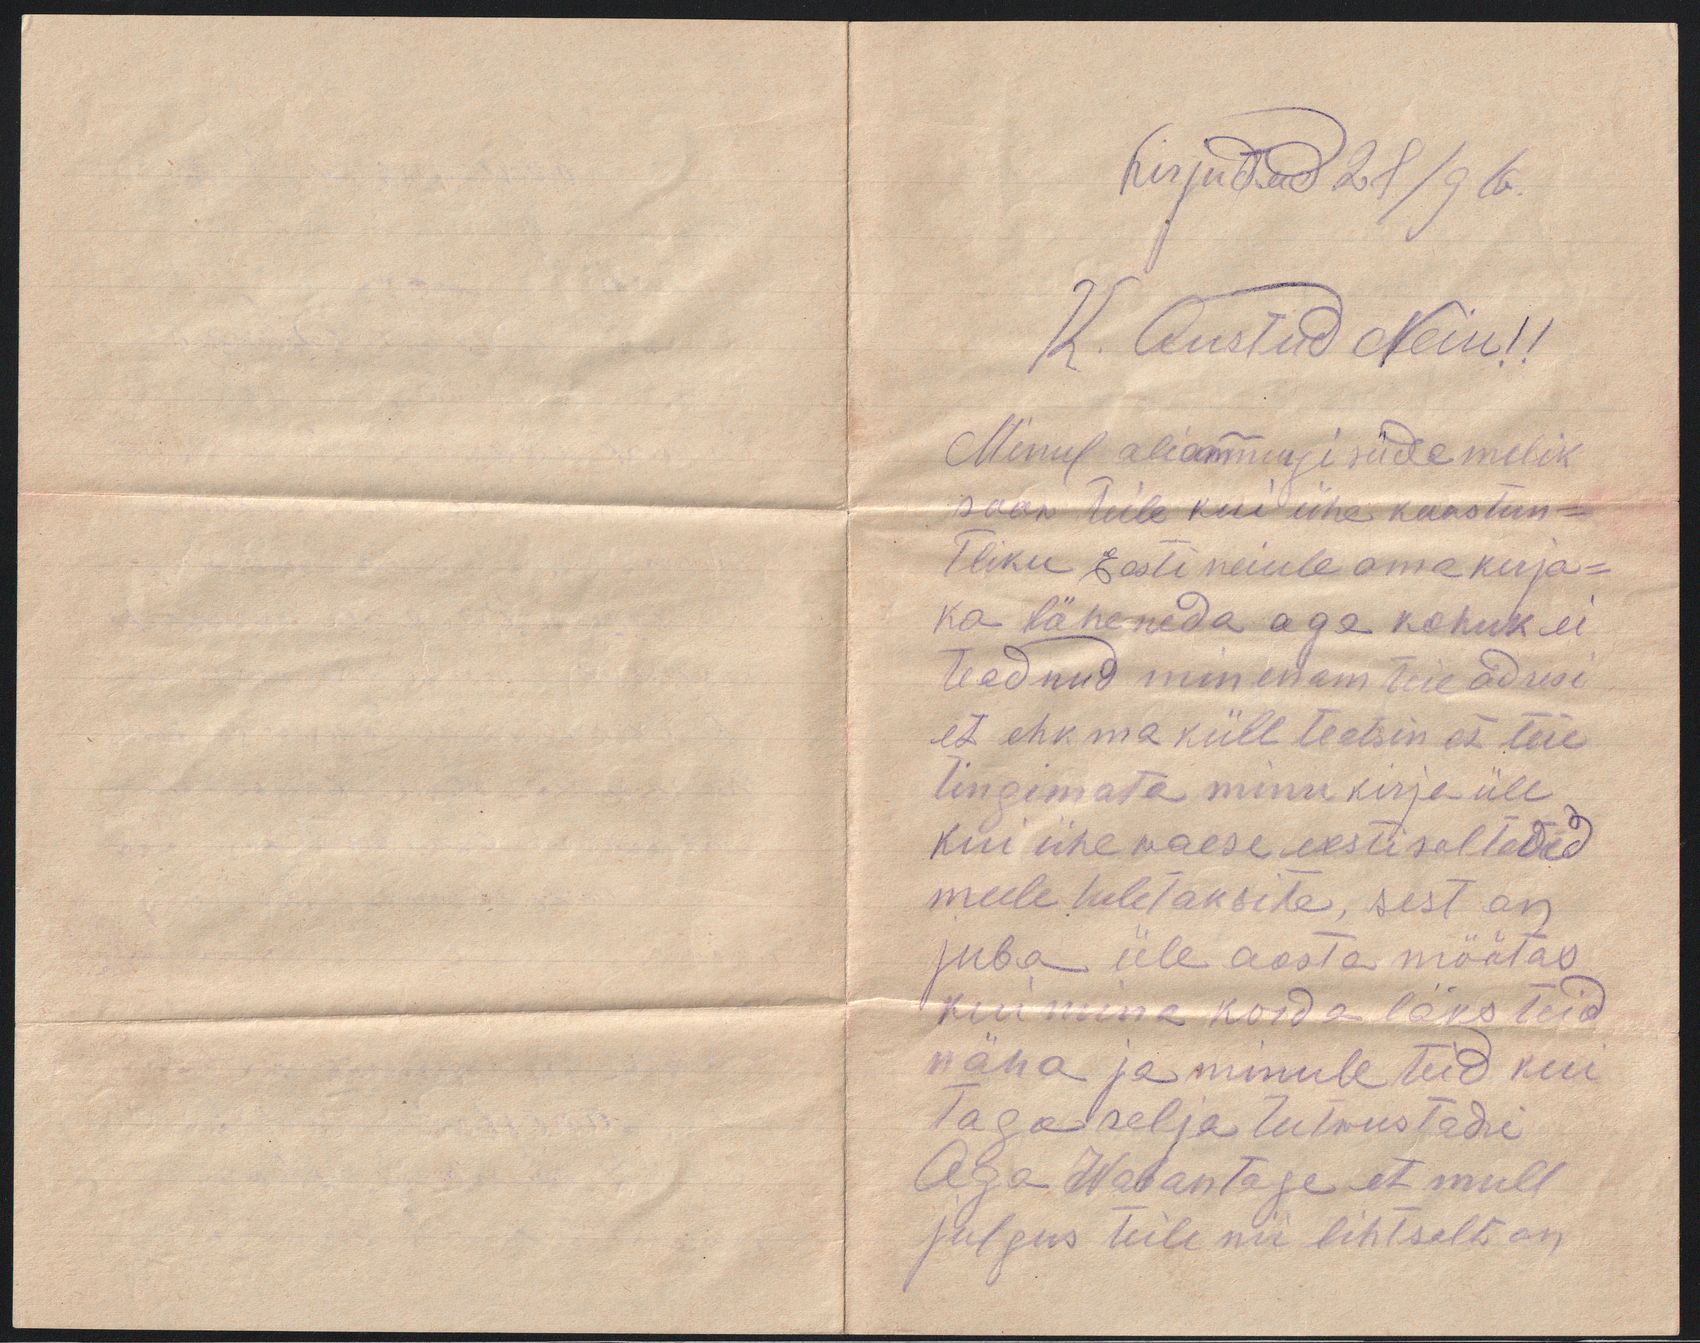 kirjutud 21/9 16.
K. Austud Neiu!!
Minul oli ammugi südamelik
soow teile kui ühe kaastun=
tliku Eesti neiule oma kirja=
ka läheneda aga kahuk ei
teadnud min enam teie adresi
et ehk ma küll teatsin et teie
tingimata minu kirja üle
kui ühe waese eestisoltatid
meele tuletaksite, sest on
juba üle aasta möötas
kui mina korda läks teid
näha ja minule teid kui
taga selja tutwustadi
Aga Wabantage et mull
julgus teile nii lihtselt on